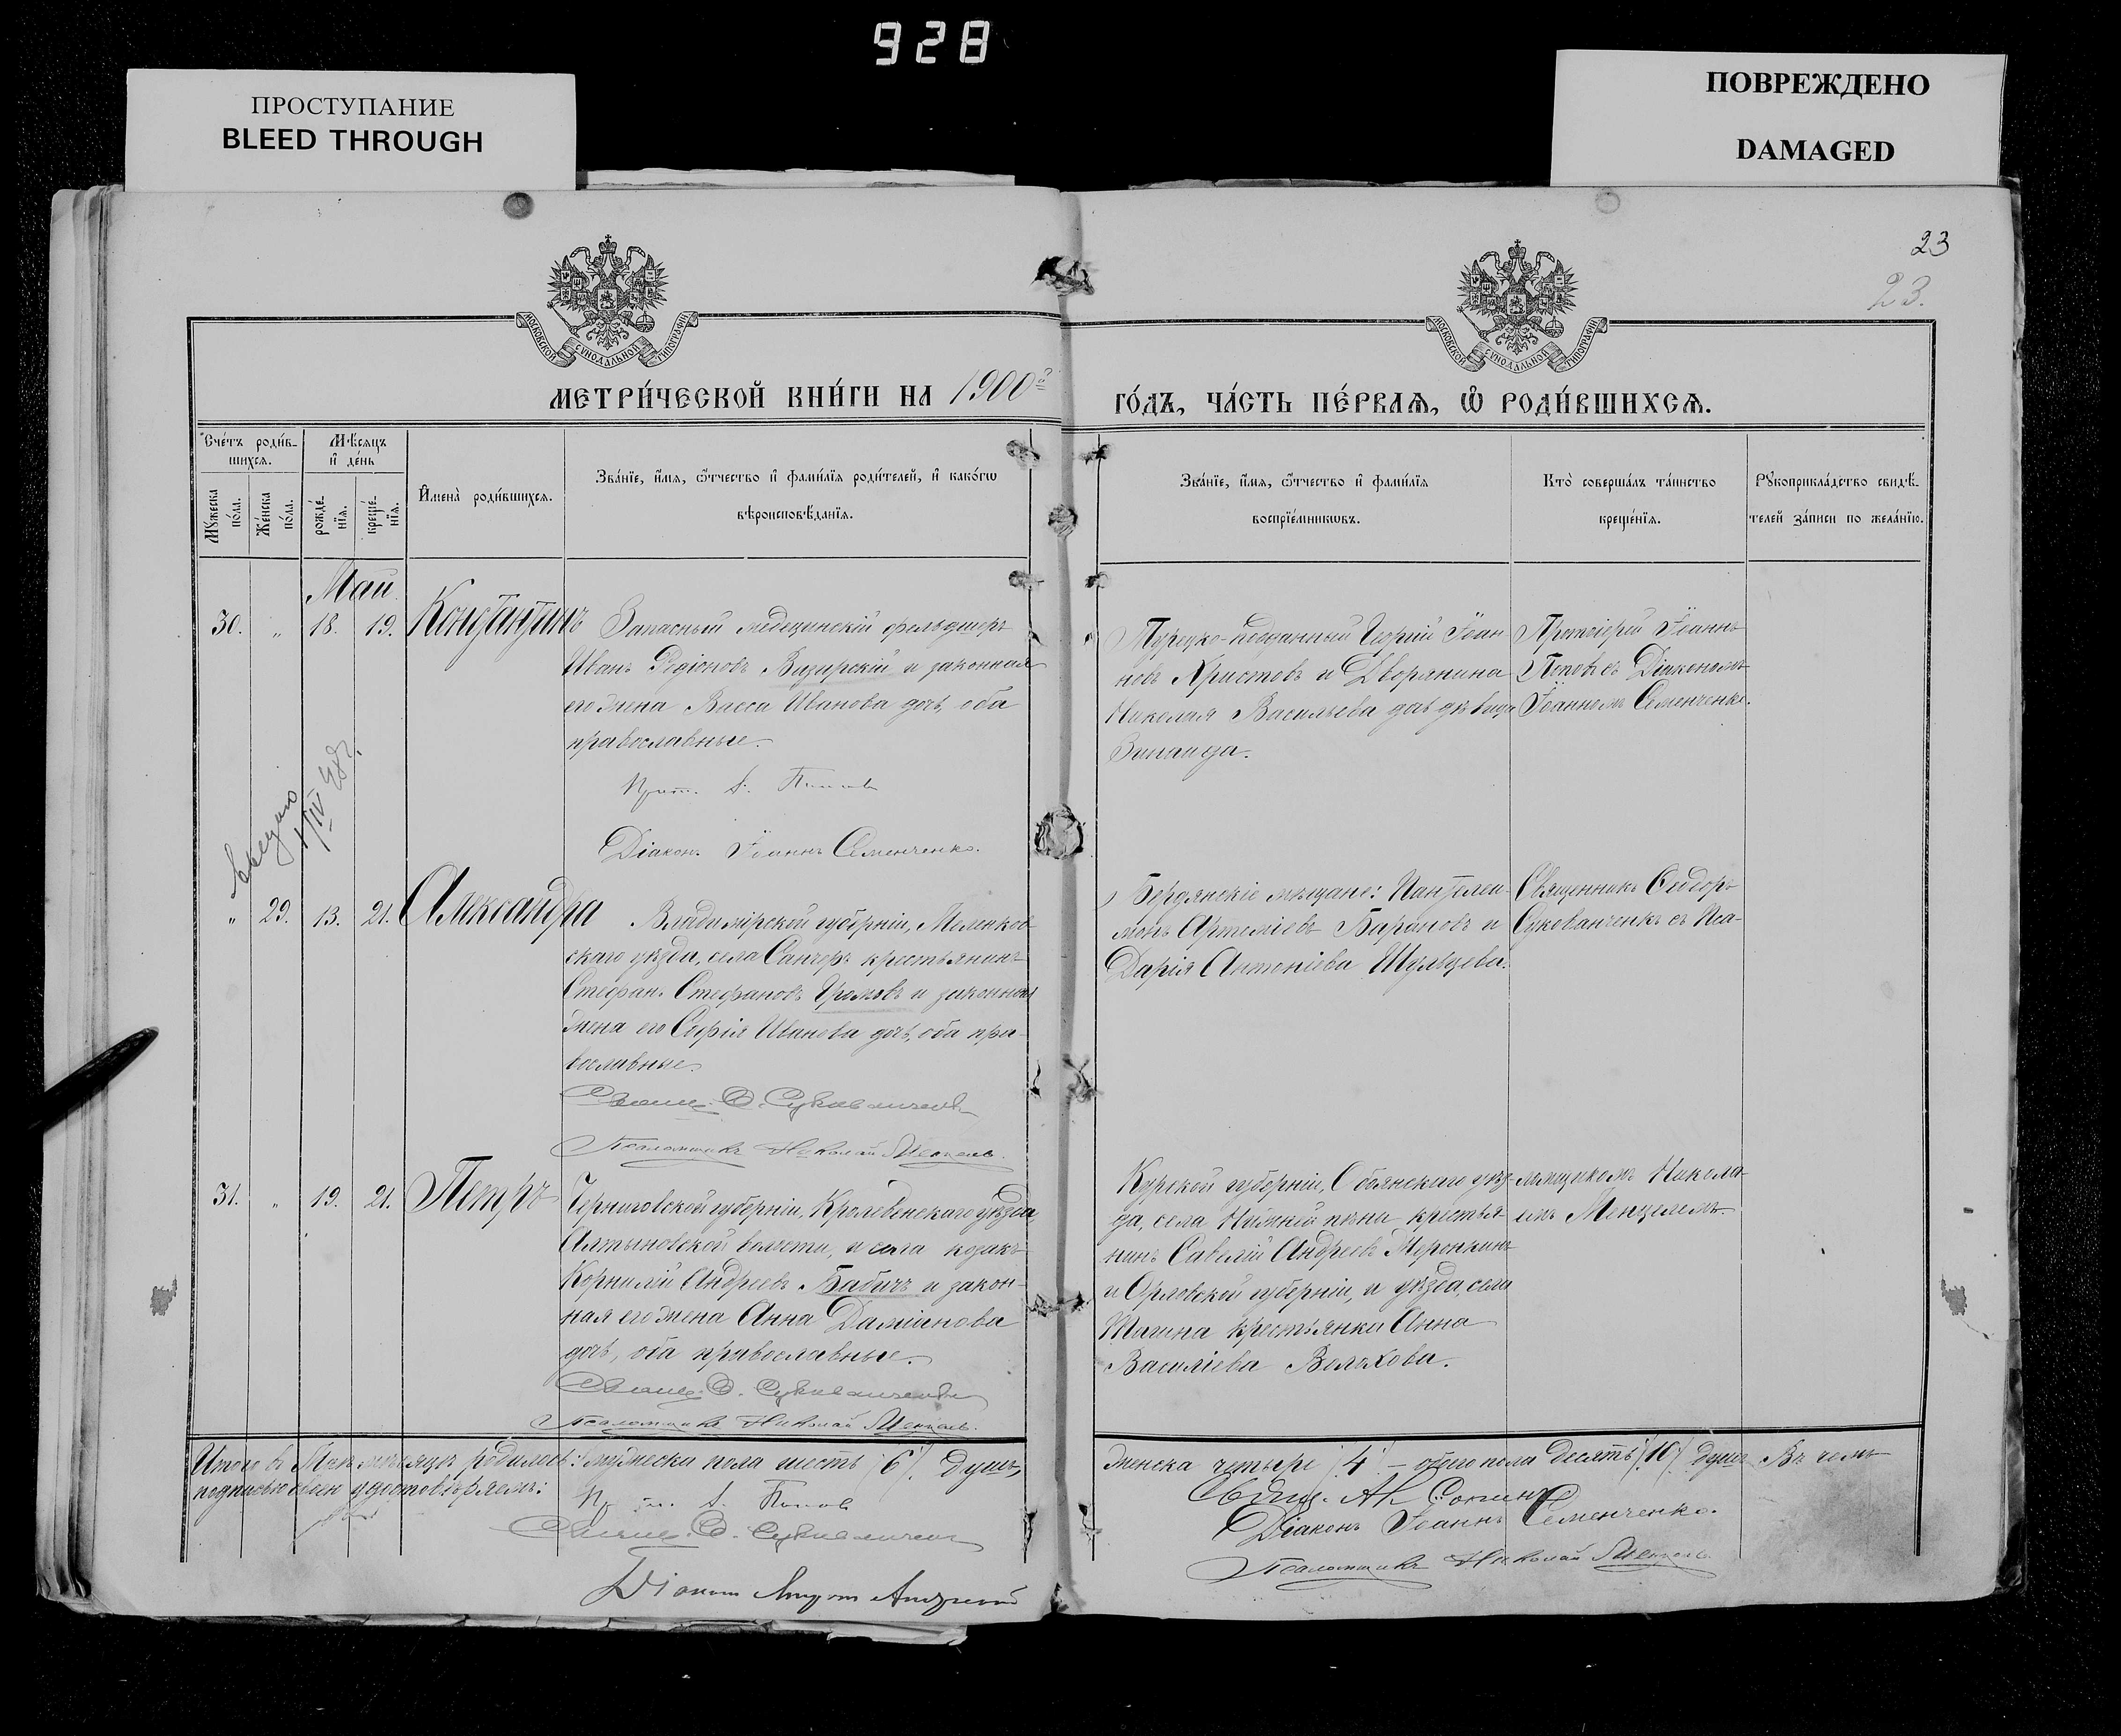 928
ПРОСТУПАНИЕ
BLEED THROUGH
ПОВРЕЖДЕНО
DAMAGED
23
23.
МОСКОВСКОЙ СУНОДАЛЬНОЙ ТИПОГРАФІИ
МОСКОВСКОЙ СУНОДАЛЬНОЙ ТИПОГРАФІИ
МЕТРИ́ЧЕСКОЙ КНИ́ГИ НА 1900й
ГО́ДЪ, ЧА́СТЬ ПЕ́РВАѦ, Ѡ РОДИ́ВШИХСѦ.
Сче́тъ роди́в-
шихсѧ.
Мѣсяцъ
и де́нь
Мꙋжеска по́ла.
Же́нска по́ла.
рожде́нїѧ.
креще́нїѧ.
Имена̀ роди́вшихсѧ.
Зва́нїе, и́мѧ, ѻ́тчество и фами́лїѧ роди́телей, и како́гѡ
вѣроисповѣ́данїѧ.
Зва́нїе, и́мѧ, ѻ́тчество и фами́лїѧ
воспрїе́мникѡвъ.
Кто̀ соверша́лъ та́инство
креще́нїѧ.
Рꙋкоприкла́дство свидѣ́-
телей за́писи по жела́нїю.
Май.
30. „ 18. 19. Константинъ
Запасный медецинскій фельдшеръ
Иванъ Родіоновъ Визирскій и законная
его жена Васса Иванова дочь, оба
православные.
Прот. І. Поповъ
Діаконъ Іоаннъ Семенченко.
Турецко-подданный Георгій Іоан-
новъ Христовъ и Дворянина
Николая Васильева дочь дѣвица
Зинаида.
Протоіерей Іоаннъ
Поповъ съ Діакономъ
Іоанномъ Семенченко.
1/IV 48г.
„ 29. 13. 21. Александра
Владимірской губерніи, Меленков-
скаго уѣзда, села Санчуръ крестьянинъ
Стефанъ Стефановъ Громовъ и законная
жена его Софія Иванова дочь, оба пра-
вославные.
Священ. Ѳ. Сукованченко
Псаломщикъ Николай Менцель.
Бердянскіе мѣщане: Пантелеи-
монъ Артеміевъ Барановъ и
Дарія Антоніева Шульцева.
Священникъ Ѳеодоръ
Сукованченкъ съ Пса-
31. „ 19. 21. Петръ
Черниговской губерніи, Кролевецкаго уѣзда,
Алтыновской волости, и села козакъ
Корнилій Андреевъ Бабичъ и закон-
ная его жена Анна Даміанова
дочь, оба православные.
Священ. Ѳ. Сукованченко
Псаломщикъ Николай Менцель.
Курской губерніи, Обоянскаго уѣз-
да, села Нижней пѣны крестья-
нинъ Савелій Андреевъ Меронкинъ
и Орловской губерніи, и уѣзда, села
Шагина крестьянка Анна
Василіева Волохова.
ломщикомъ Никола-
емъ Менцелемъ.
Итого въ Маѣ мѣсяцѣ родилось: мужеска пола шесть /6/ душъ,
женска четыре /4/ – обоего пола десять /10/ душъ. Въ чемъ
подписью своею удостовѣряемъ:
Прот. І. Поповъ
Священ. Ѳ. Сукованченко
Діаконъ Андреевъ
Свящ. Ак. Сопинъ
Діаконъ Іоаннъ Семенченко.
Псаломщикъ Николай Менцель.